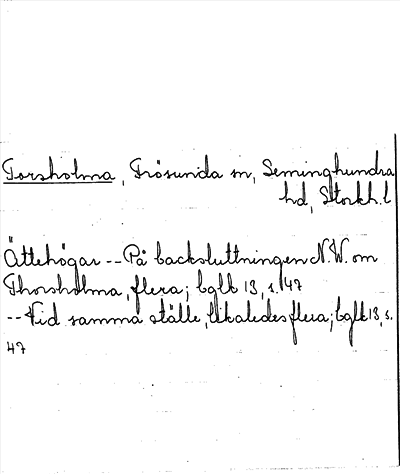 Torsholma, Frösunda sn, Seminghundra
hd, Stockh. l
Ättehögar -- På backsluttningen N.W. om
Thorsholma, flera; bglk 13, s. 47
-- Vid samma ställe, likaledes flera; bglk 13, s.
47